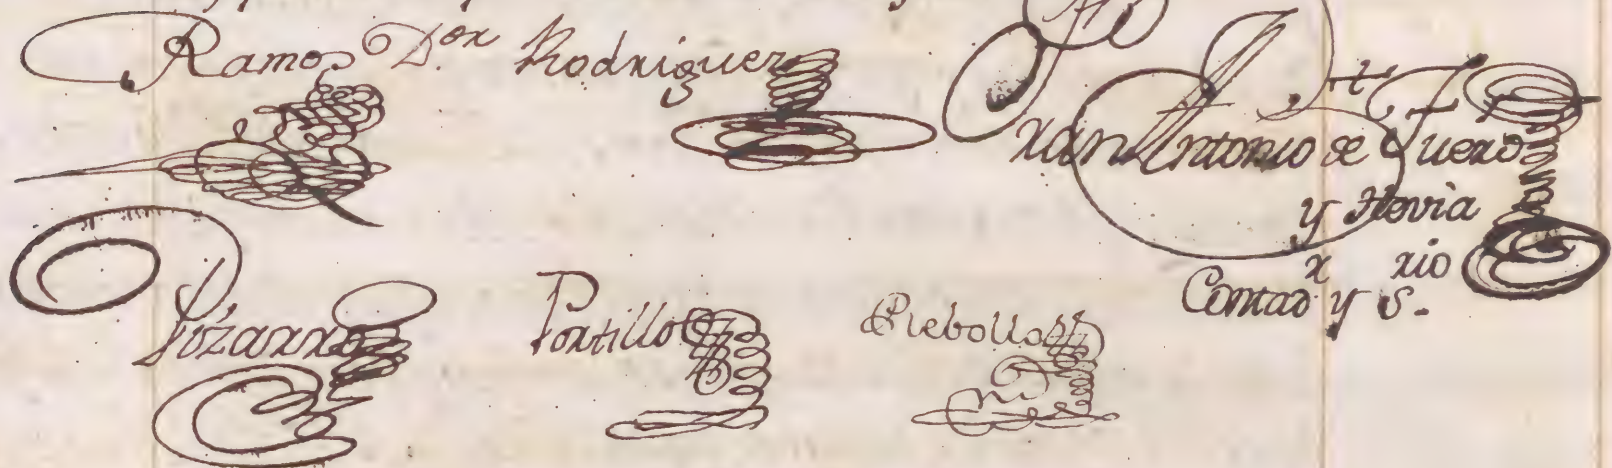 Ramos D.or Rodriguez
Fran Antonio de Fuero
y Hevia
Contad.r y S.rio
Pizarro Portillo Rebollo